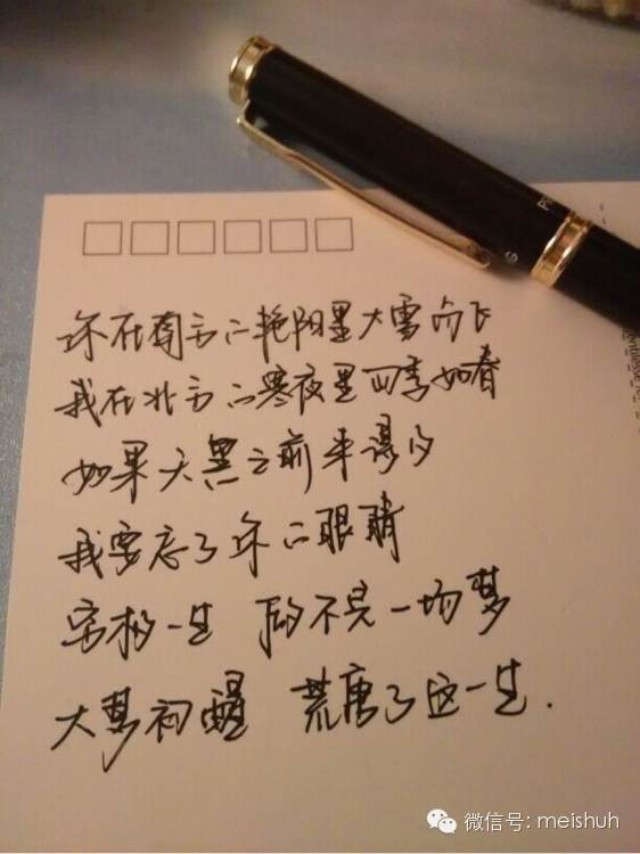 你在南方的艳阳里大雪纷飞
我在北方的寒夜里四季如春
如果天黑之前来得及
我要忘了你的眼睛
穷极一生 做不完一场梦
大梦初醒 荒唐了这一生.
微信号: meishuh